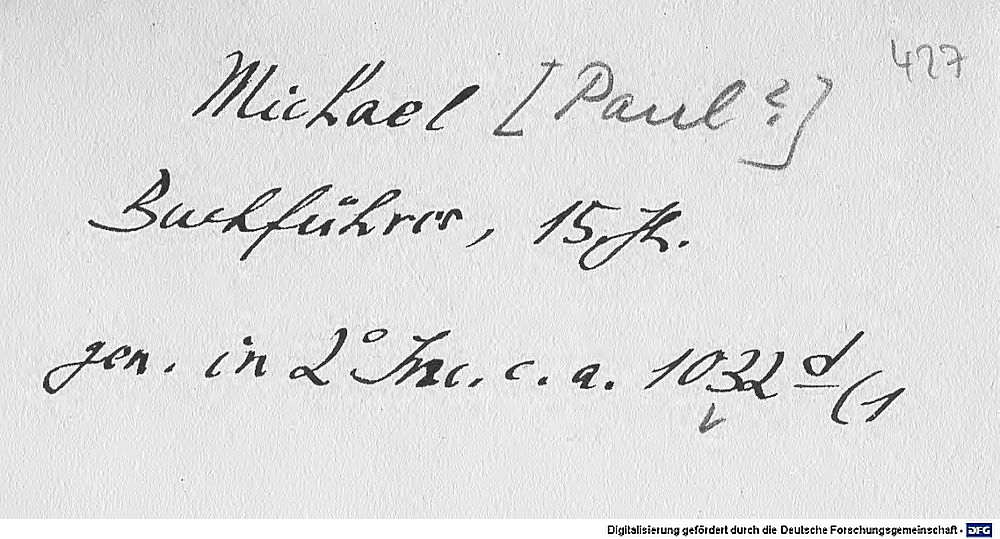 427
Michael [Paul?]
Buchführer, 15. Jh.
gen. in 2° Inc. c. a. 1032 d (1
Digitalisierung gefördert durch die Deutsche Forschungsgemeinschaft - DFG